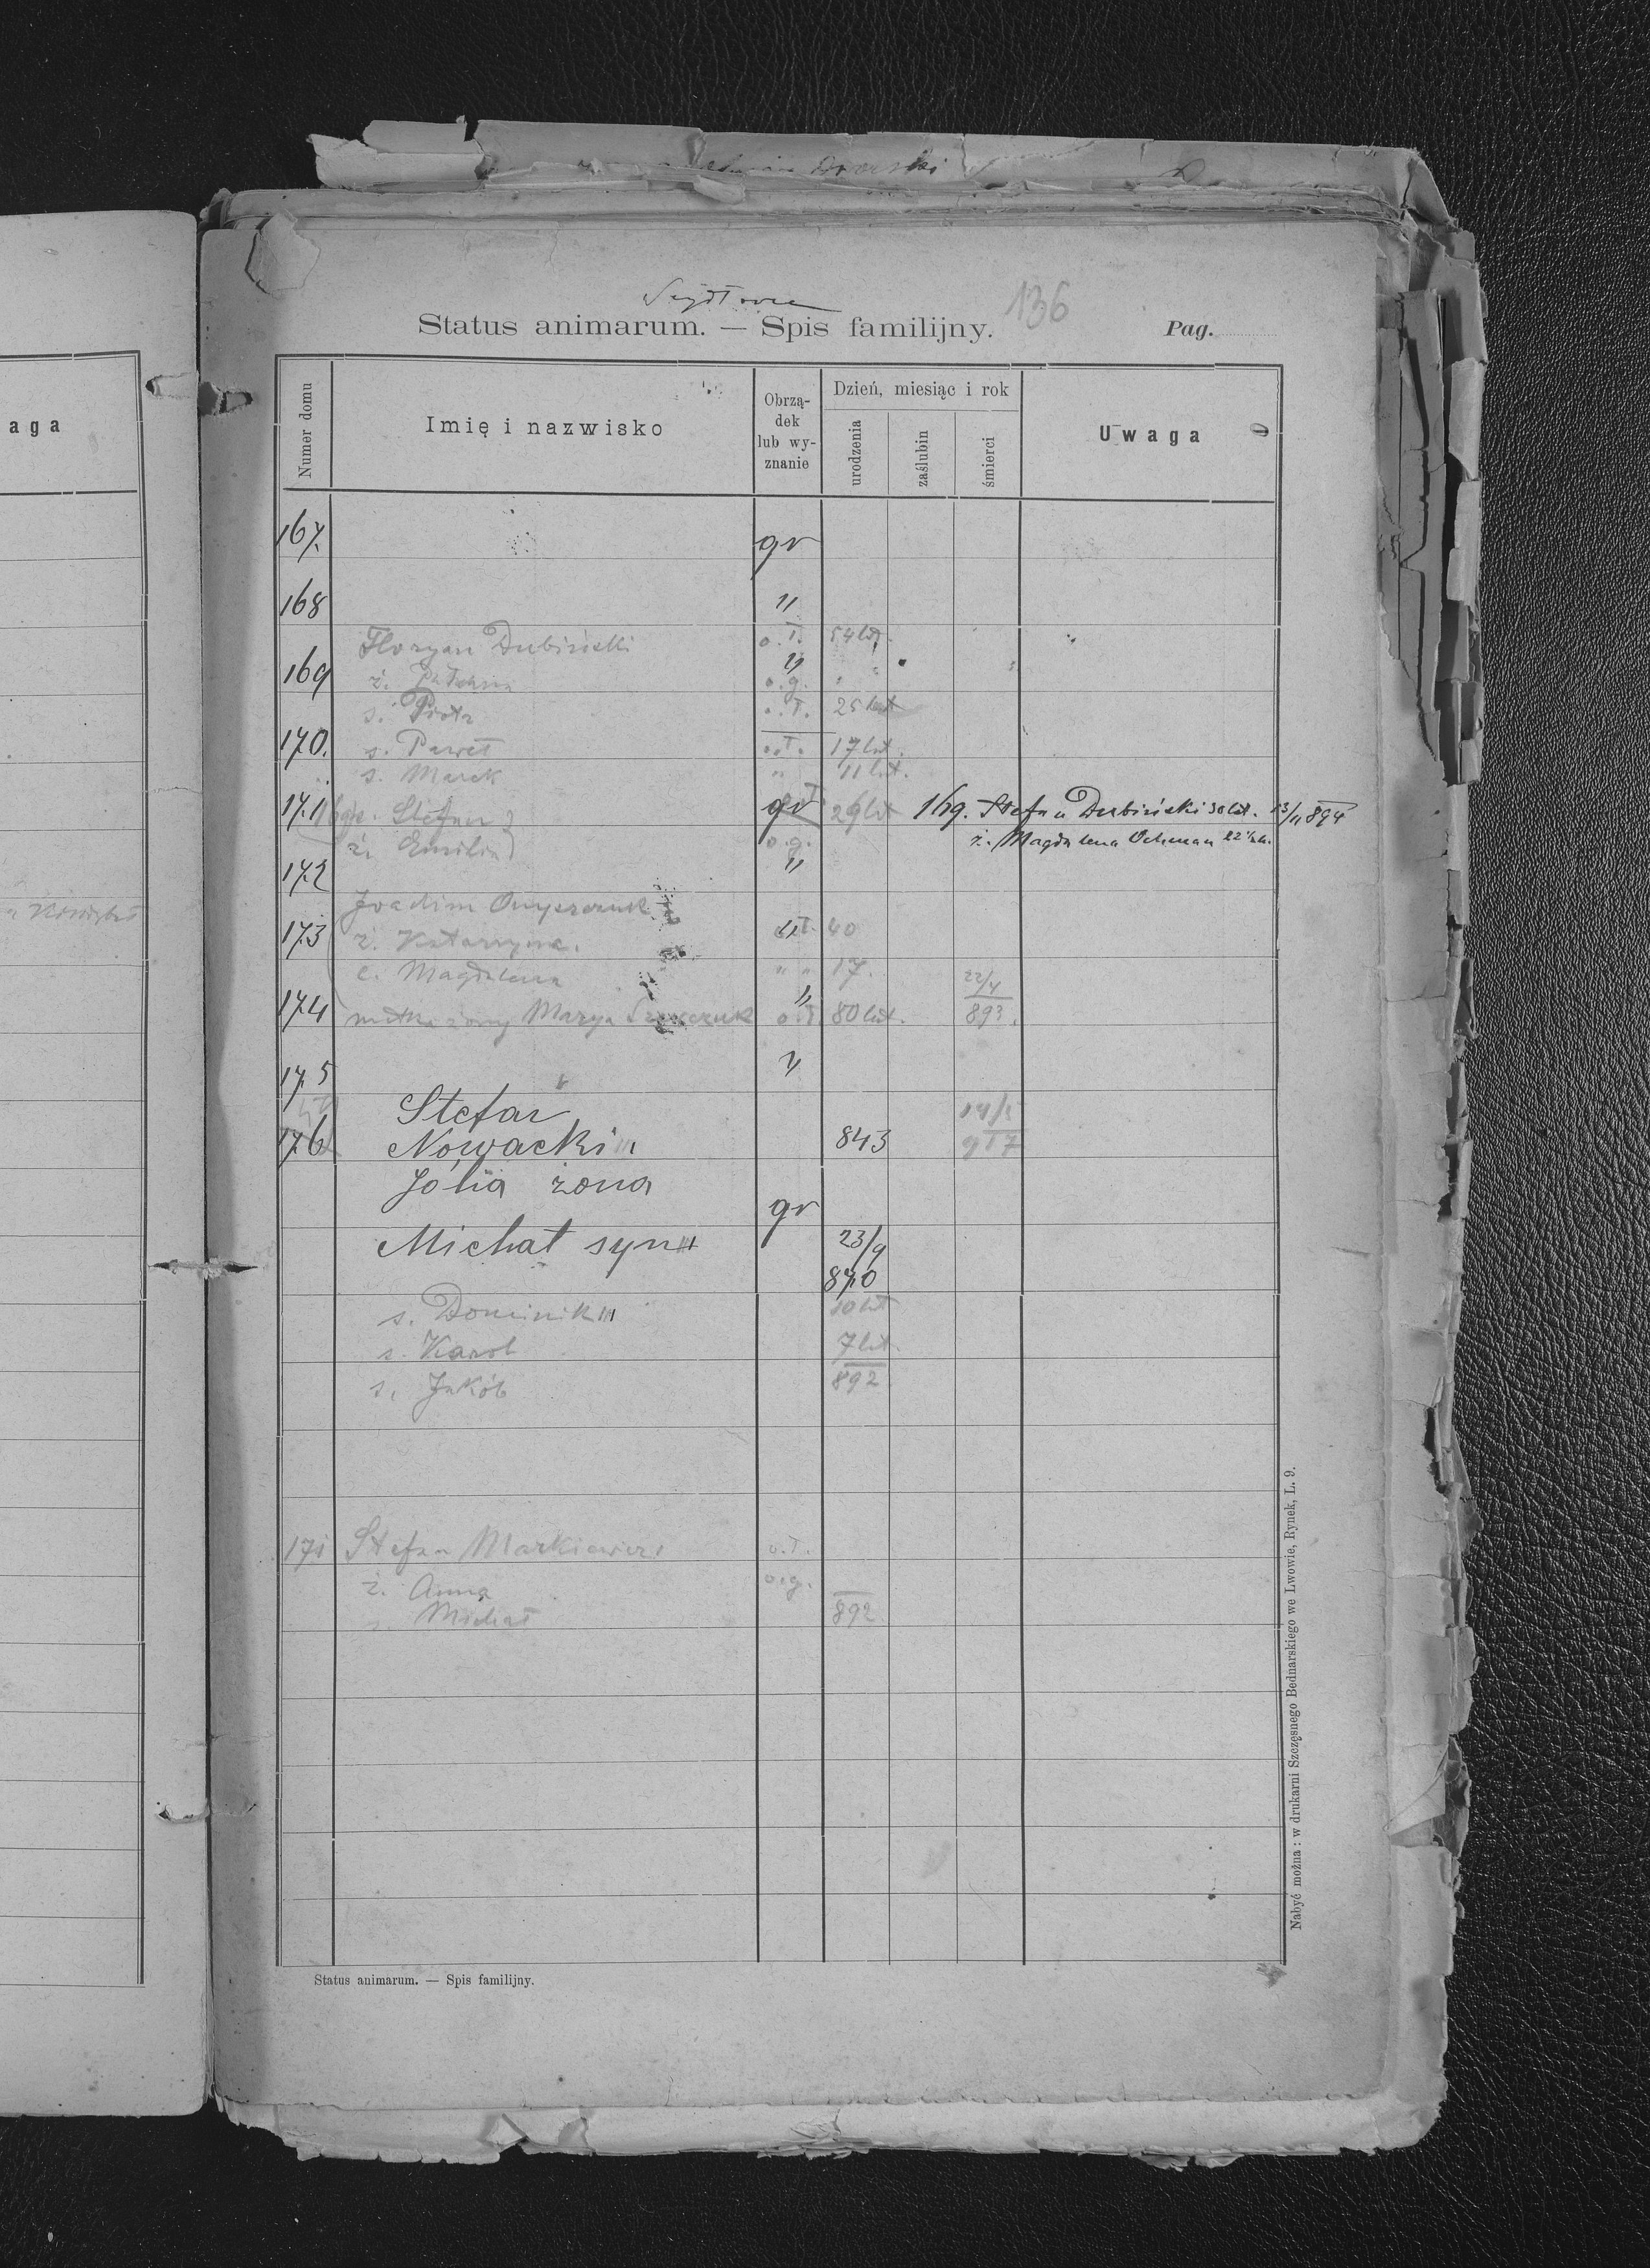 136
Status animarum. — Spis familijny. Pag.
aga
Numer domu
Imię i nazwisko
Obrzą-
dek
lub wy-
znanie
Dzień, miesiąc i rok
urodzenia
zaślubin
śmierci
Uwaga
167. gr
168 "
Floryan Dubiński o.ł. 54 lat.
169 "
ż. o.g. " "
s. Piotr o.ł. 25 lat
170. s. Paweł o.ł. 17 lat.
s. Marek " 11 lat.
171 Stefan gr 29 lat 169. Stefan Dubiński 30 lat. 13/11 894
ż. Emilia o.g. ż. Magdalena Ochman 22 ½ l.
172 "
Joachim
173 ż. Katarzyna. " 40
c. Magdalena " " 17. 22/4
174 matka żony Marya o.ł 80 lat. 893.
175 "
Stefan 14/5
176 Nowacki 843 917
Jólia żona
gr
Michał syn 23/9
870
s. Dominik 10 lat
s. Karol 7 lat.
s. Jakób 892
171 Stefan Markiewicz o.ł.
ż. Anna o.g.
s. Michał 892
Status animarum. — Spis familijny.
Nabyć można: w drukarni Szczęsnego Bednarskiego we Lwowie, Rynek, L. 9.